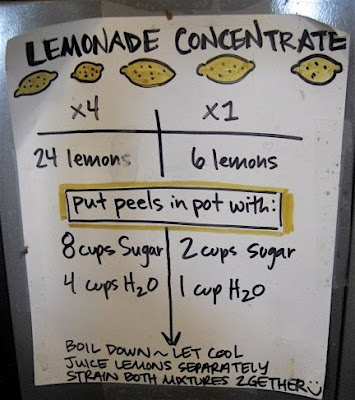 LEMONADE CONCENTRATE
x4 x1
24 lemons 6 lemons
put peels in pot with:
8 cups Sugar 2 cups Sugar
4 cups H2O 1 cup H2O
BOIL DOWN ~ LET COOL
JUICE LEMONS SEPARATELY
STRAIN BOTH MIXTURES 2GETHER